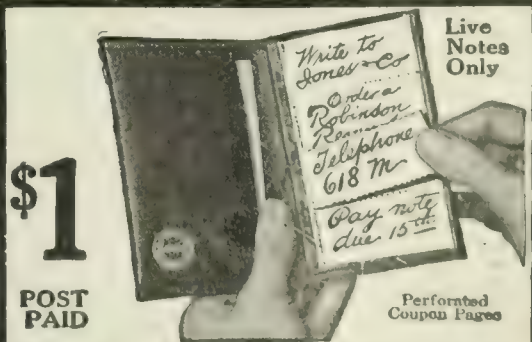 Live
Notes
Only
Write to
Jones & Co
Order a
Robinson
Telephone
618 M
Pay note
due 15
$1
POST
PAID
Perforated
Coupon Pages